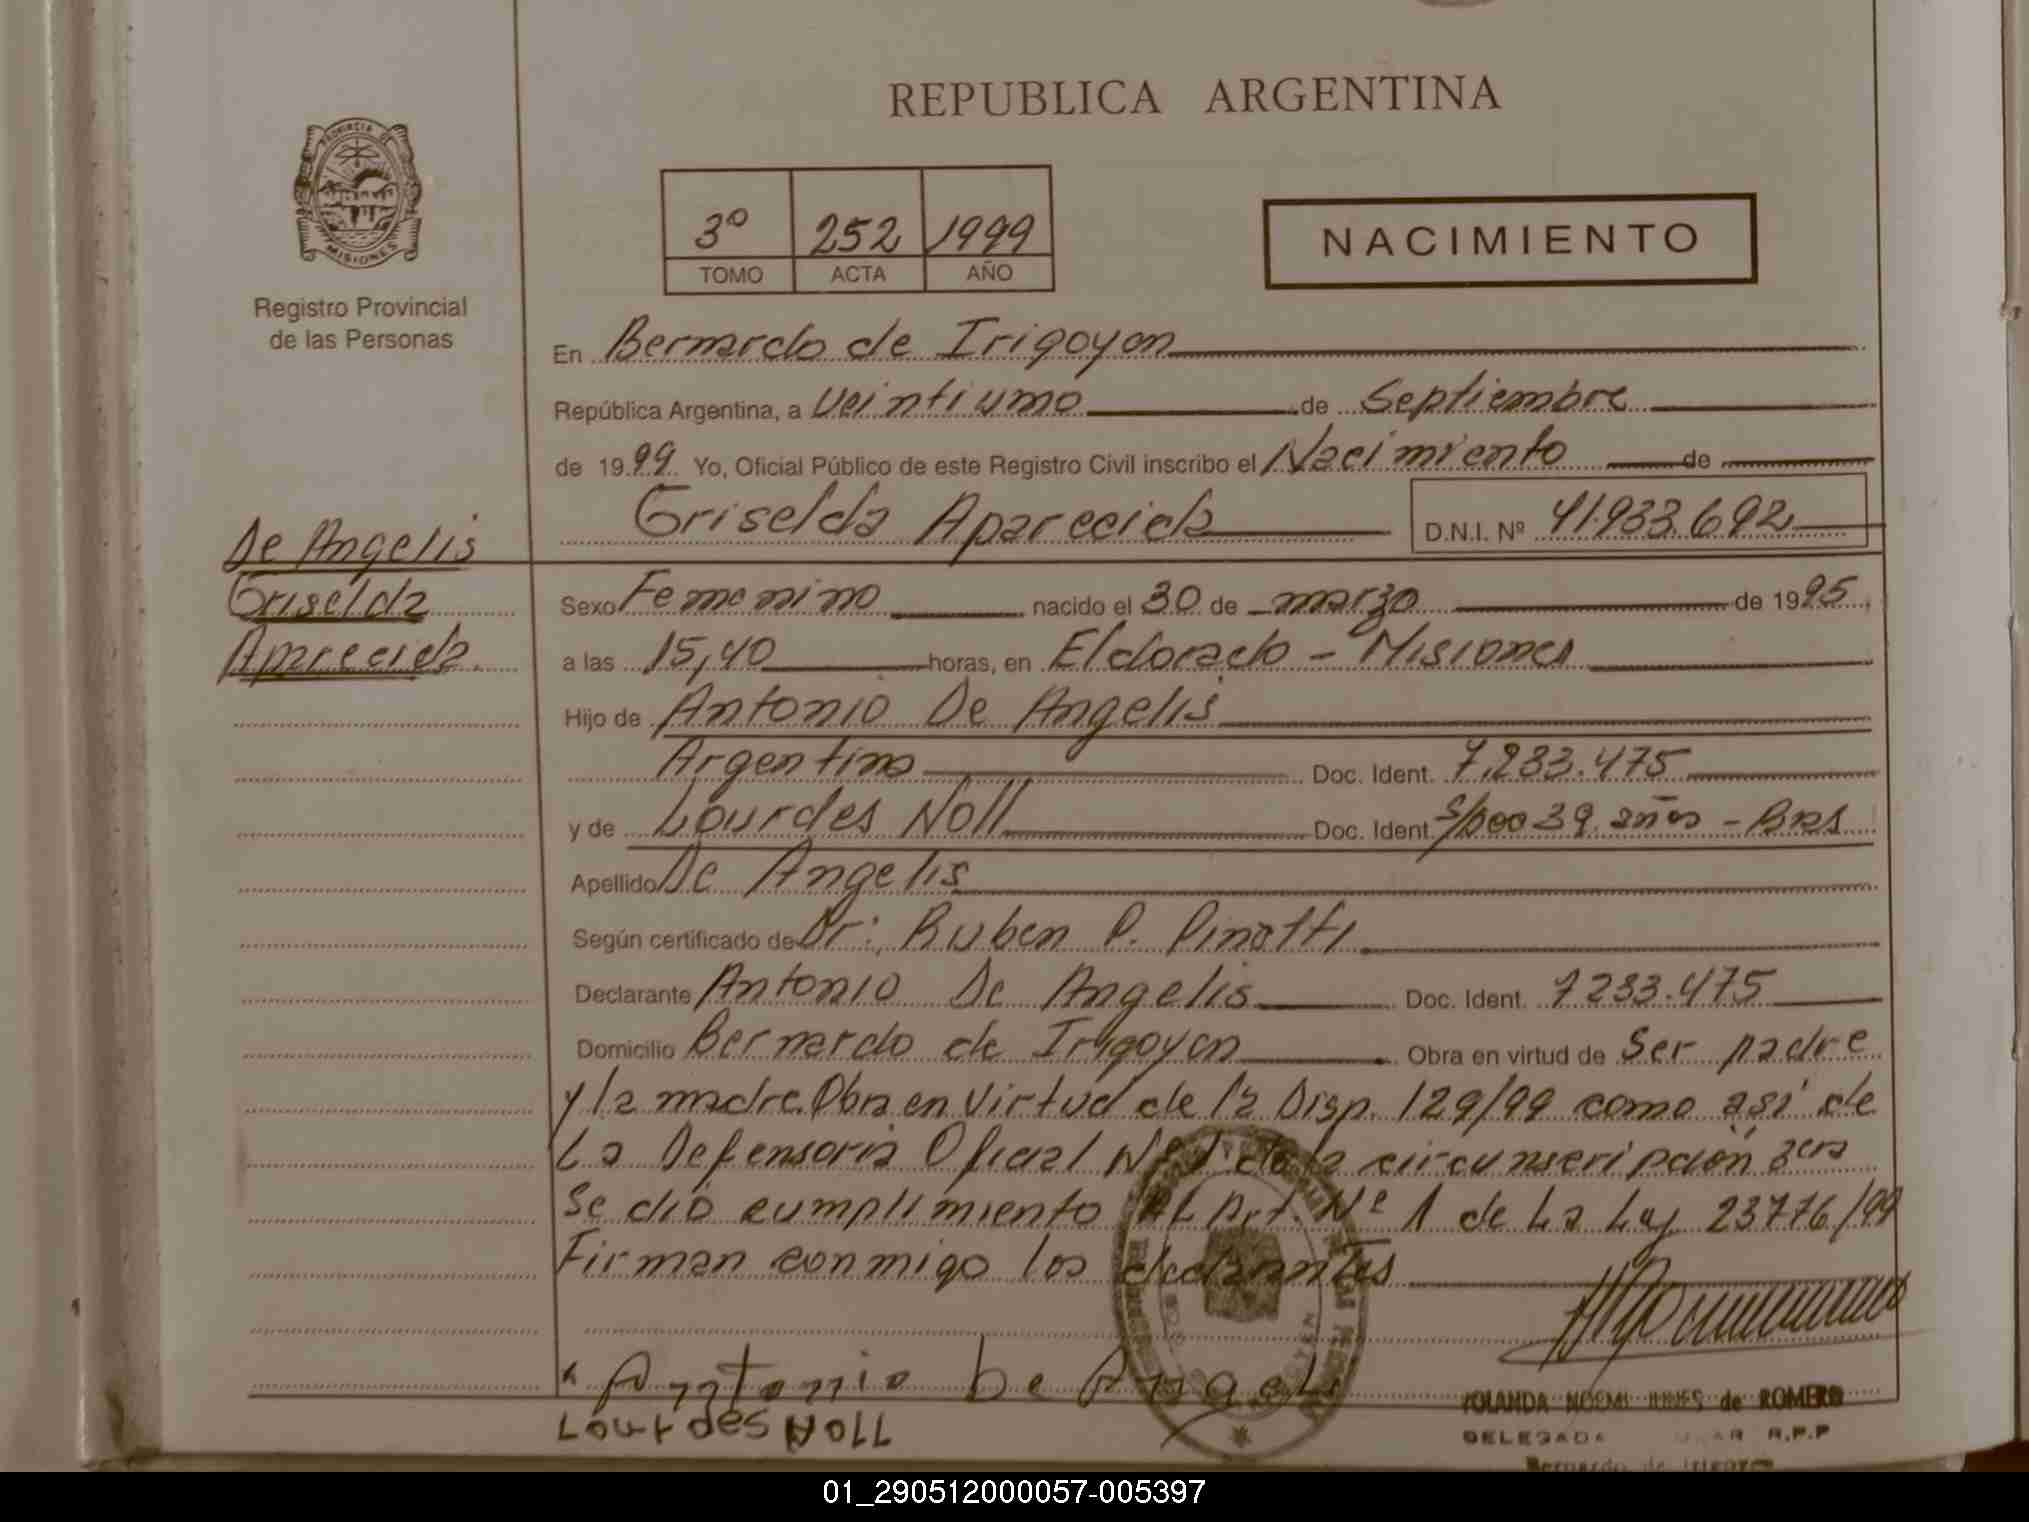 REPUBLICA ARGENTINA
PROVINCIA DE
MISIONES
Registro Provincial
de las Personas
3º 252 1999
TOMO ACTA AÑO
NACIMIENTO
En Bernardo de Irigoyen
República Argentina, a Veintiuno de Septiembre
de 1999 Yo, Oficial Público de este Registro Civil inscribo el Nacimiento de
Griselda Aparecida D.N.I. Nº 41.933.692
De Angelis
Griselda
Aparecida.
Sexo Femenino nacido el 30 de marzo de 1995
a las 15,40 horas, en Eldorado - Misiones
Hijo de Antonio De Angelis
Argentino Doc. Ident. 7.233.475
y de Lourdes Noll Doc. Ident. 39 años - Bras
Apellido De Angelis
Según certificado de Dr: Ruben P. Pinatti
Declarante Antonio De Angelis Doc. Ident. 7233.475
Domicilio Bernardo de Irigoyen Obra en virtud de Ser padre
y la madre Obra en virtud de la Disp. 129/99 como asi de
La Defensoria Oficial Nº 1 de la circunscripción 3era
Se dió cumplimiento AL Art. Nº 1 de La Ley 23776/99
Firman conmigo los declarantes
Antonio De Angelis
Lourdes Noll
YOLANDA NOEMI de ROMERO
DELEGADA R.P.P
Bernardo de Irigoyen
01_290512000057-005397